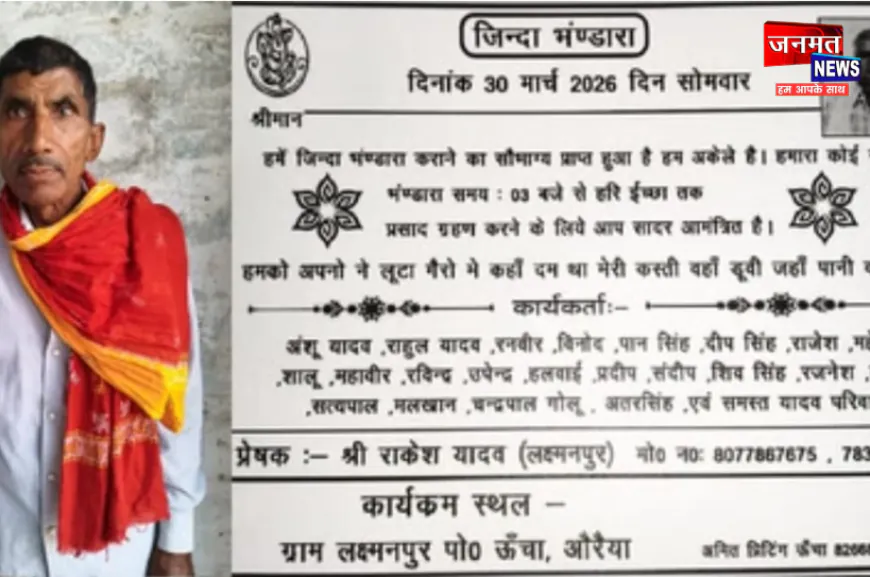 जिन्दा भंण्डारा
जनमत
NEWS
हम आपके साथ
दिनांक 30 मार्च 2026 दिन सोमवार
श्रीमान
हमें जिन्दा भंण्डारा कराने का सौभाग्य प्राप्त हुआ है हम अकेले है। हमारा कोई
भंण्डारा समय : 03 बजे से हरि ईच्छा तक
प्रसाद ग्रहण करने के लिये आप सादर आमंत्रित है।
हमको अपनो ने लूटा गैरो मे कहाँ दम था मेरी कस्ती वहाँ डूवी जहाँ पानी
कार्यकर्ताः-
अंशू यादव ,राहुल यादव ,रनवीर ,विनोद ,पान सिंह ,दीप सिंह ,राजेश
,शालू ,महावीर ,रविन्द्र ,उपेन्द्र ,हलवाई ,प्रदीप ,संदीप ,शिव सिंह ,रजनेश
,सत्यपाल ,मलखान ,चन्द्रपाल गोलू , अतरसिंह ,एवं समस्त यादव
प्रेषक :– श्री राकेश यादव (लक्ष्मनपुर) मो0 नo: 8077867675 , 783
कार्यकम स्थल –
ग्राम लक्ष्मनपुर पो0 ऊँचा, औरैया
अमित प्रिटिंग ऊँचा